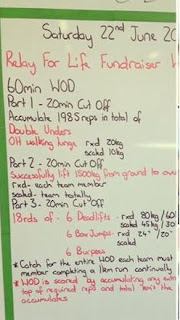 Saturday 22nd June 20
Relay For Life Fundraiser W
60min WOD
Part 1 - 20min Cut Off
Accumulate 1985 reps in total of
Double Unders
OH walking lunge rxd 20kg
scaled 10kg
Part 2 - 20min Cut Off
Successfully lift 1500kg from ground to over
rxd- each team member
scaled- team totally
Part 3- 20min Cut Off
18rds of - 6 Deadlifts - rxd 80kg/60
scaled 45kg/30
6 Box Jumps - rxd 24" /20"
scaled
6 Burpees
* Catch for the entire WOD each team must
member completing a 1km run continually
* WOD is scored by accumulating any extra
top of required reps and total km's the
accumulates